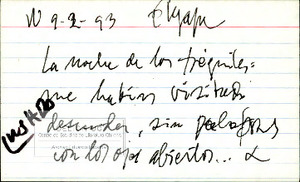 N 9-2-93
La noche de los frágiles:
me habían visitado
desnudos, sin palabras
con los ojos abiertos...